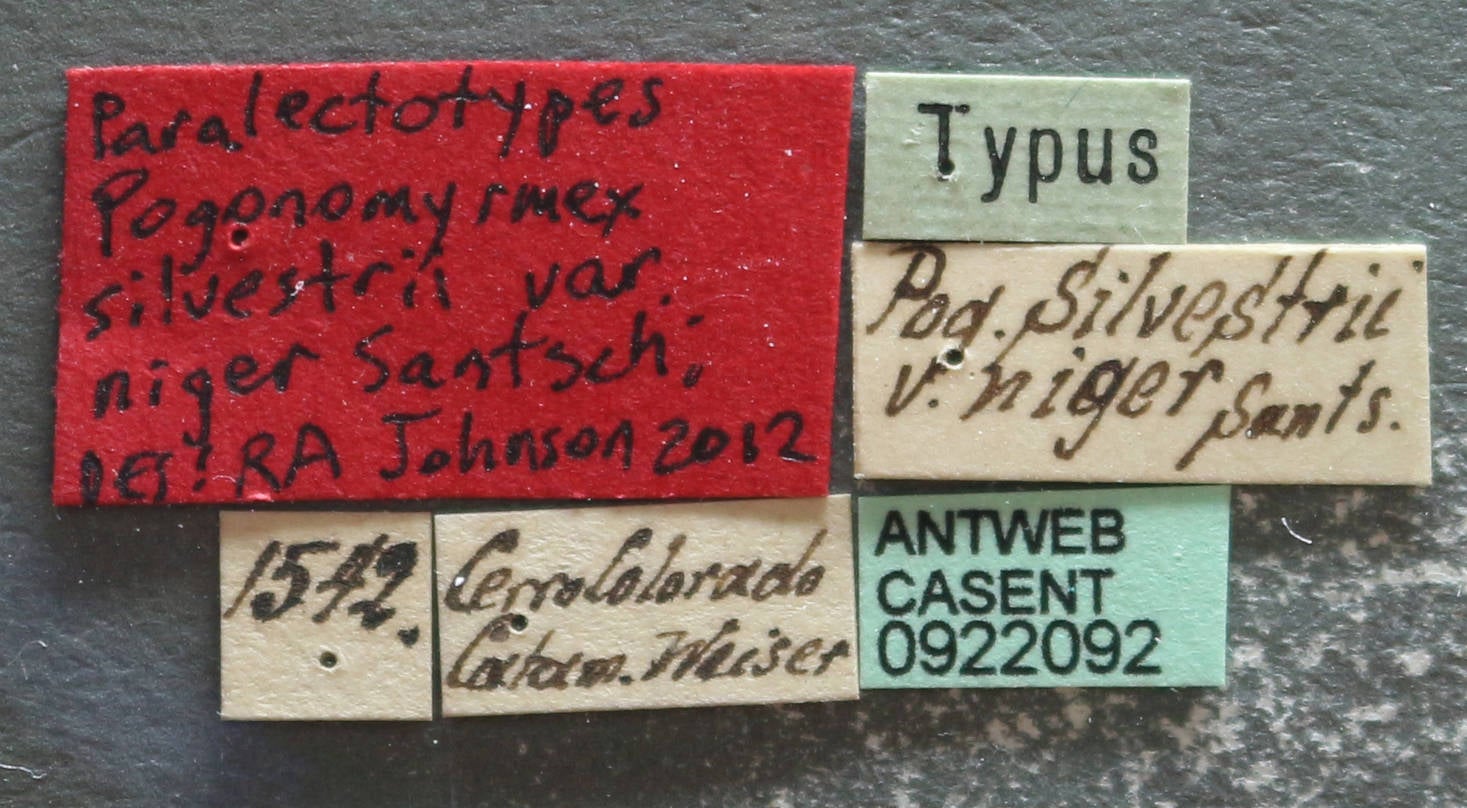 Paralectotypes
Pogonomyrmex
silvestrii var.
niger Santschi
DES! RA Johnson 2012
Typus
Pog. Silvestrii
v. niger Sants.
1542.
Cerro Colorado
Catam. Weiser
ANTWEB
CASENT
0922092